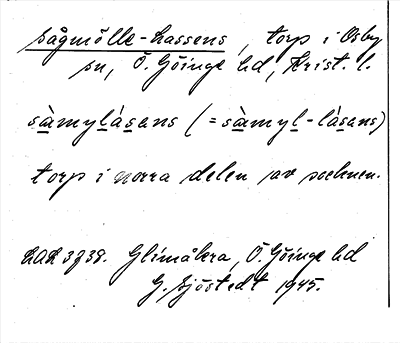 Sågmölle-Lassens, torp i Osby
sn, Ö. Göinge hd, Krist. l.
sàmylásens (= sàmyl-lásens)
torp i norra delen av socknen.
Glimåkra, Ö. Göinge hd
G. Sjöstedt 1945.